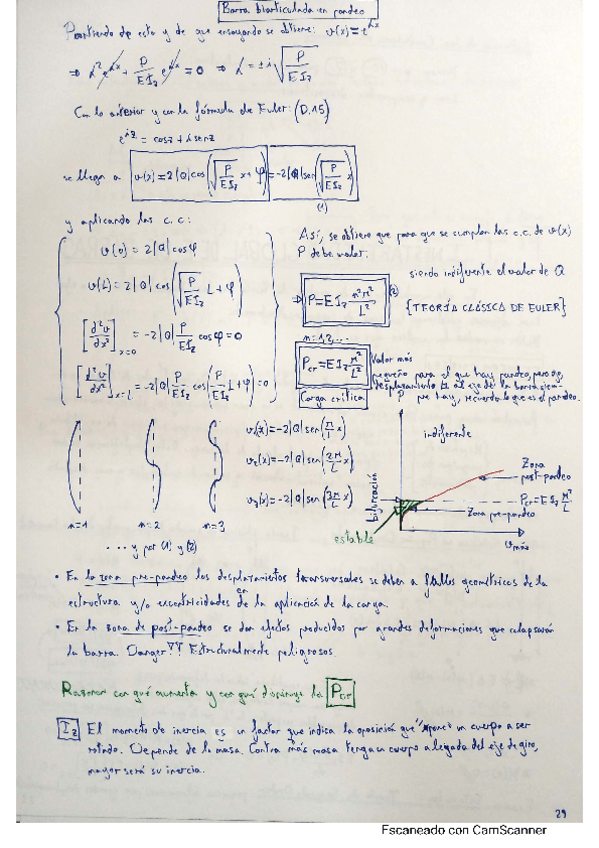 Barra biarticulada en pandeo
Partiendo de esto y de que ensayando se obtiene: v(x) = e^λx
⇒ λ² e^λx + P/EIz e^λx = 0 ⇒ λ = ± i √(P/EIz)
Con lo anterior y con la fórmula de Euler: (D.15)
= cos z + i sen z
se llega a v(x) = 2|Q| cos(√(P/EIz) x + φ) = -2|Q| sen(√(P/EIz) x)
(1)
y aplicando las c.c:
v(0) = 2|Q| cos φ
v(L) = 2|Q| cos(√(P/EIz) L + φ)
[d²v/dx²]x=0 = -2|Q| P/EIz cos φ = 0
[d²v/dx²]x=L = -2|Q| P/EIz cos(√(P/EIz) L + φ) = 0
Así, se obtiene que para que se cumplan las c.c. de v(x)
P debe valer:
siendo indiferente el valor de Q
⇒ P = EIz n²π²/L² (2)
{TEORÍA CLÁSICA DE EULER}
n = 1, 2, ...
Pcr = EIz π²/L²
Carga crítica
Valor más
pequeño para el que hay pandeo,
desplazamiento
hay, recuerda lo que es el pandeo.
n=1
n=2
n=3
v₁(x) = -2|Q| sen(π/L x)
v₂(x) = -2|Q| sen(2π/L x)
v₃(x) = -2|Q| sen(3π/L x)
... y por (1) y (2)
P
indiferente
bifurcación
Zona
post-pandeo
Pcr = EIz π²/L²
Zona pre-pandeo
estable
vmáx
• En la zona pre-pandeo los desplazamientos transversales se deben a fallos geométricos de la
estructura y/o excentricidades en de la aplicación de la carga.
• En la zona de post-pandeo se dan efectos producidos por grandes deformaciones que colapsarán
la barra. Danger?? Estructuralmente peligrosos
Razonar con qué aumenta y con qué disminuye la Pcr
Iz El momento de inercia es un factor que indica la oposición que "opone" un cuerpo a ser
rotado. Depende de la masa. Contra más masa tenga un cuerpo alejada del eje de giro,
mayor será su inercia.
29
Escaneado con CamScanner